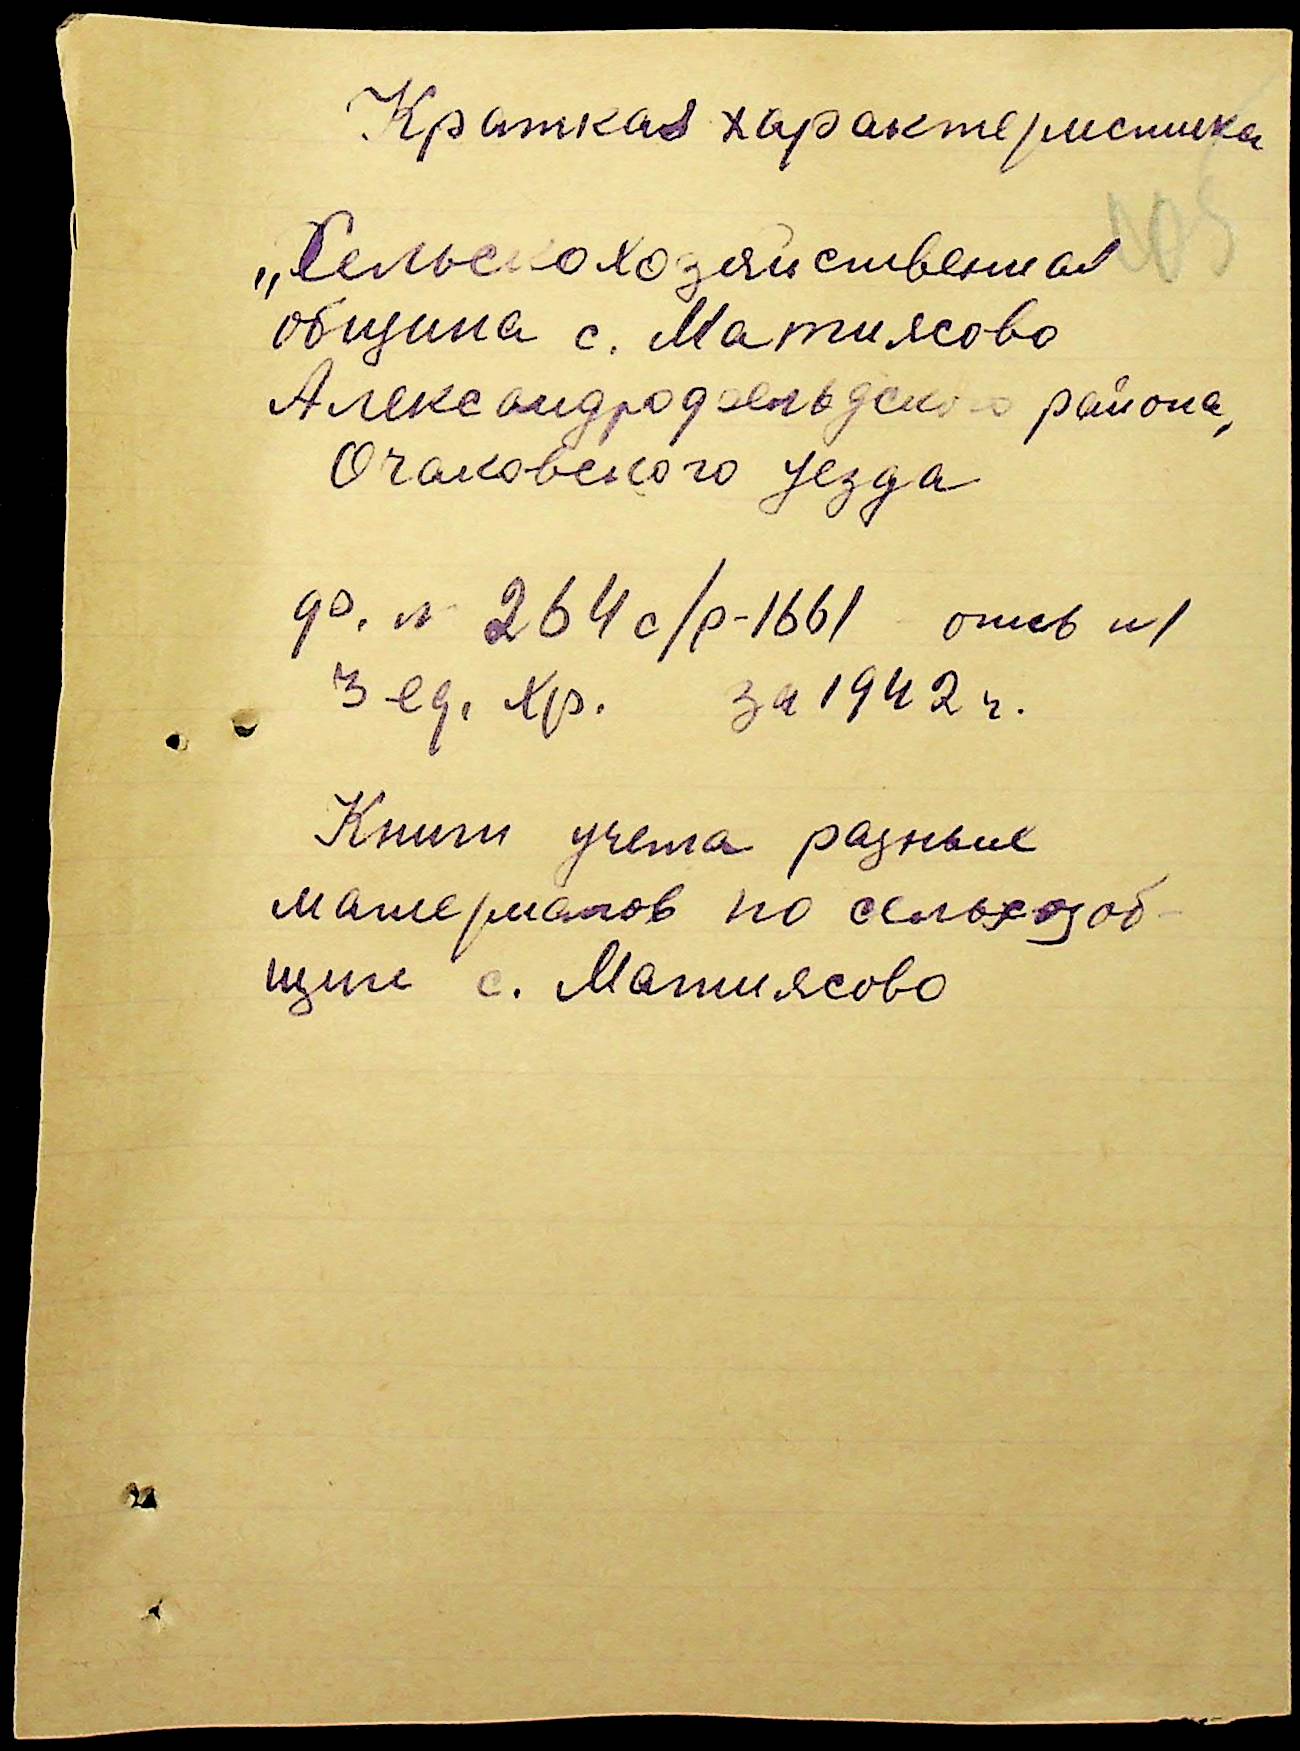 Краткая характеристика
„Сельскохозяйственная
община с. Матиясово
Александрофельдского района,
Очаковского уезда
ф. № 264 с/р-1661 опись №1
3 ед. хр. за 1942 г.
Книги учета разных
материалов по сельхозоб-
щине с. Матиясово